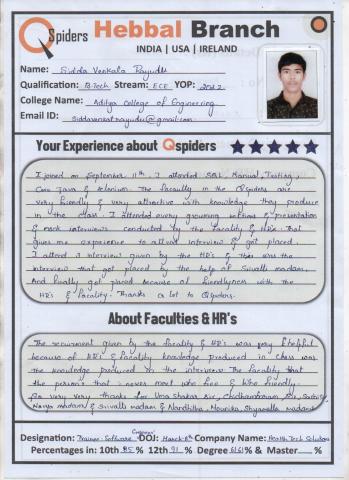 QSpiders Hebbal Branch
INDIA | USA | IRELAND
Name: Sidda Venkata Rayudu
Qualification: B.Tech Stream: ECE YOP: 2022
College Name: Aditya College of Engineering
Email ID: Siddavenkatrayudu@gmail.com
Your Experience about Qspiders
I joined on September 11th, I attended SQL, Manual, Testing,
Core Java & selenium. The faculty in the Qspiders are
very friendly & very attractive with knowledge they produce
in the class. I attended every grooming & presentation
& mock interviews conducted by the faculity & HR's. that
gives me experience to attend interview & got placed.
I attend 3 interview given by the HR's & this was the
interview that got placed by the help of Sivalli madam.
And finally got placed because of friendlyness with the
HR's & faculity. Thanks a lot to Qspiders.
About Faculties & HR's
The recuirment given by the faculity & HR's was very helpful
because of HR's & faculity knowledge produced in class was
the knowledge produced in the interview. The faculity that
the person's that i never meet who free & who friendly.
So very very thanks for Uma Shakar Sir, Chidhambaram Sir,
Navya madam & Sivalli madam & Nandhitha, Mounika, Shyamalla madam
Designation: Trainee-Software DOJ: March-8th Company Name: Health Tech Solutions
Percentages in: 10th 85 % 12th 91 % Degree 61.61 % & Master %